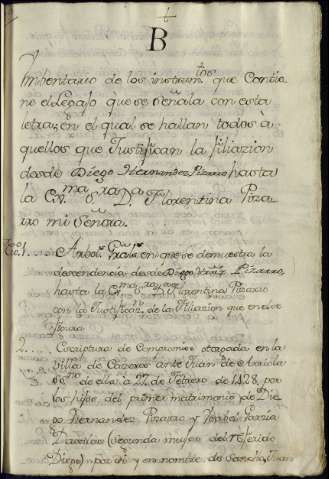 B
Imbentario de los instrum.tos que Contie-
ne el Legajo que se señala con esta
letra, en el qual se hallan todos a-
quellos que Justifican la filiazion
desde Diego Hernandez Pizarro hasta
la Ex.ma S.ra D.a Florentina Pizar-
ro mi Señora.
en que se demuestra la
descendencia desde Diego Pizarro,
hasta la Ex.ma S.ra D.a Florentina Pizarro
con la Justificaz.n de la filiazion que en el se
figura
2 Escriptura de Compromiso otorgada en la
Villa de Cazeres ante Juan de
de ella a 22 de Febrero de 1528 por
los hijos del primer matrimonio de Die-
go Hernandez Pizarro y Ysabel Garzia
(segunda muger del referido
Diego) por sí y en nombre de Sancho, Juan